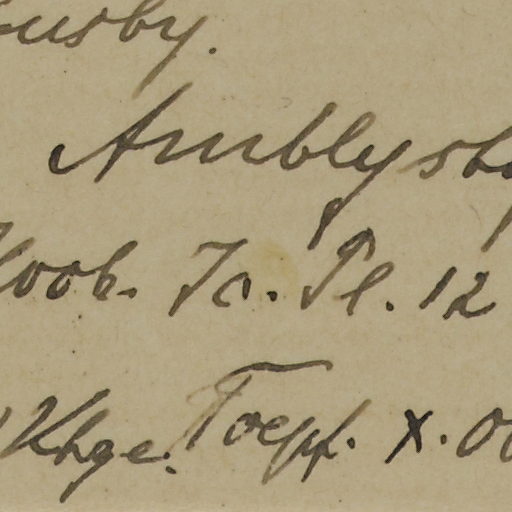 usby.
Amblyst
Hoob. Ic. Pl. 12
Khge. Toepf. X. 00